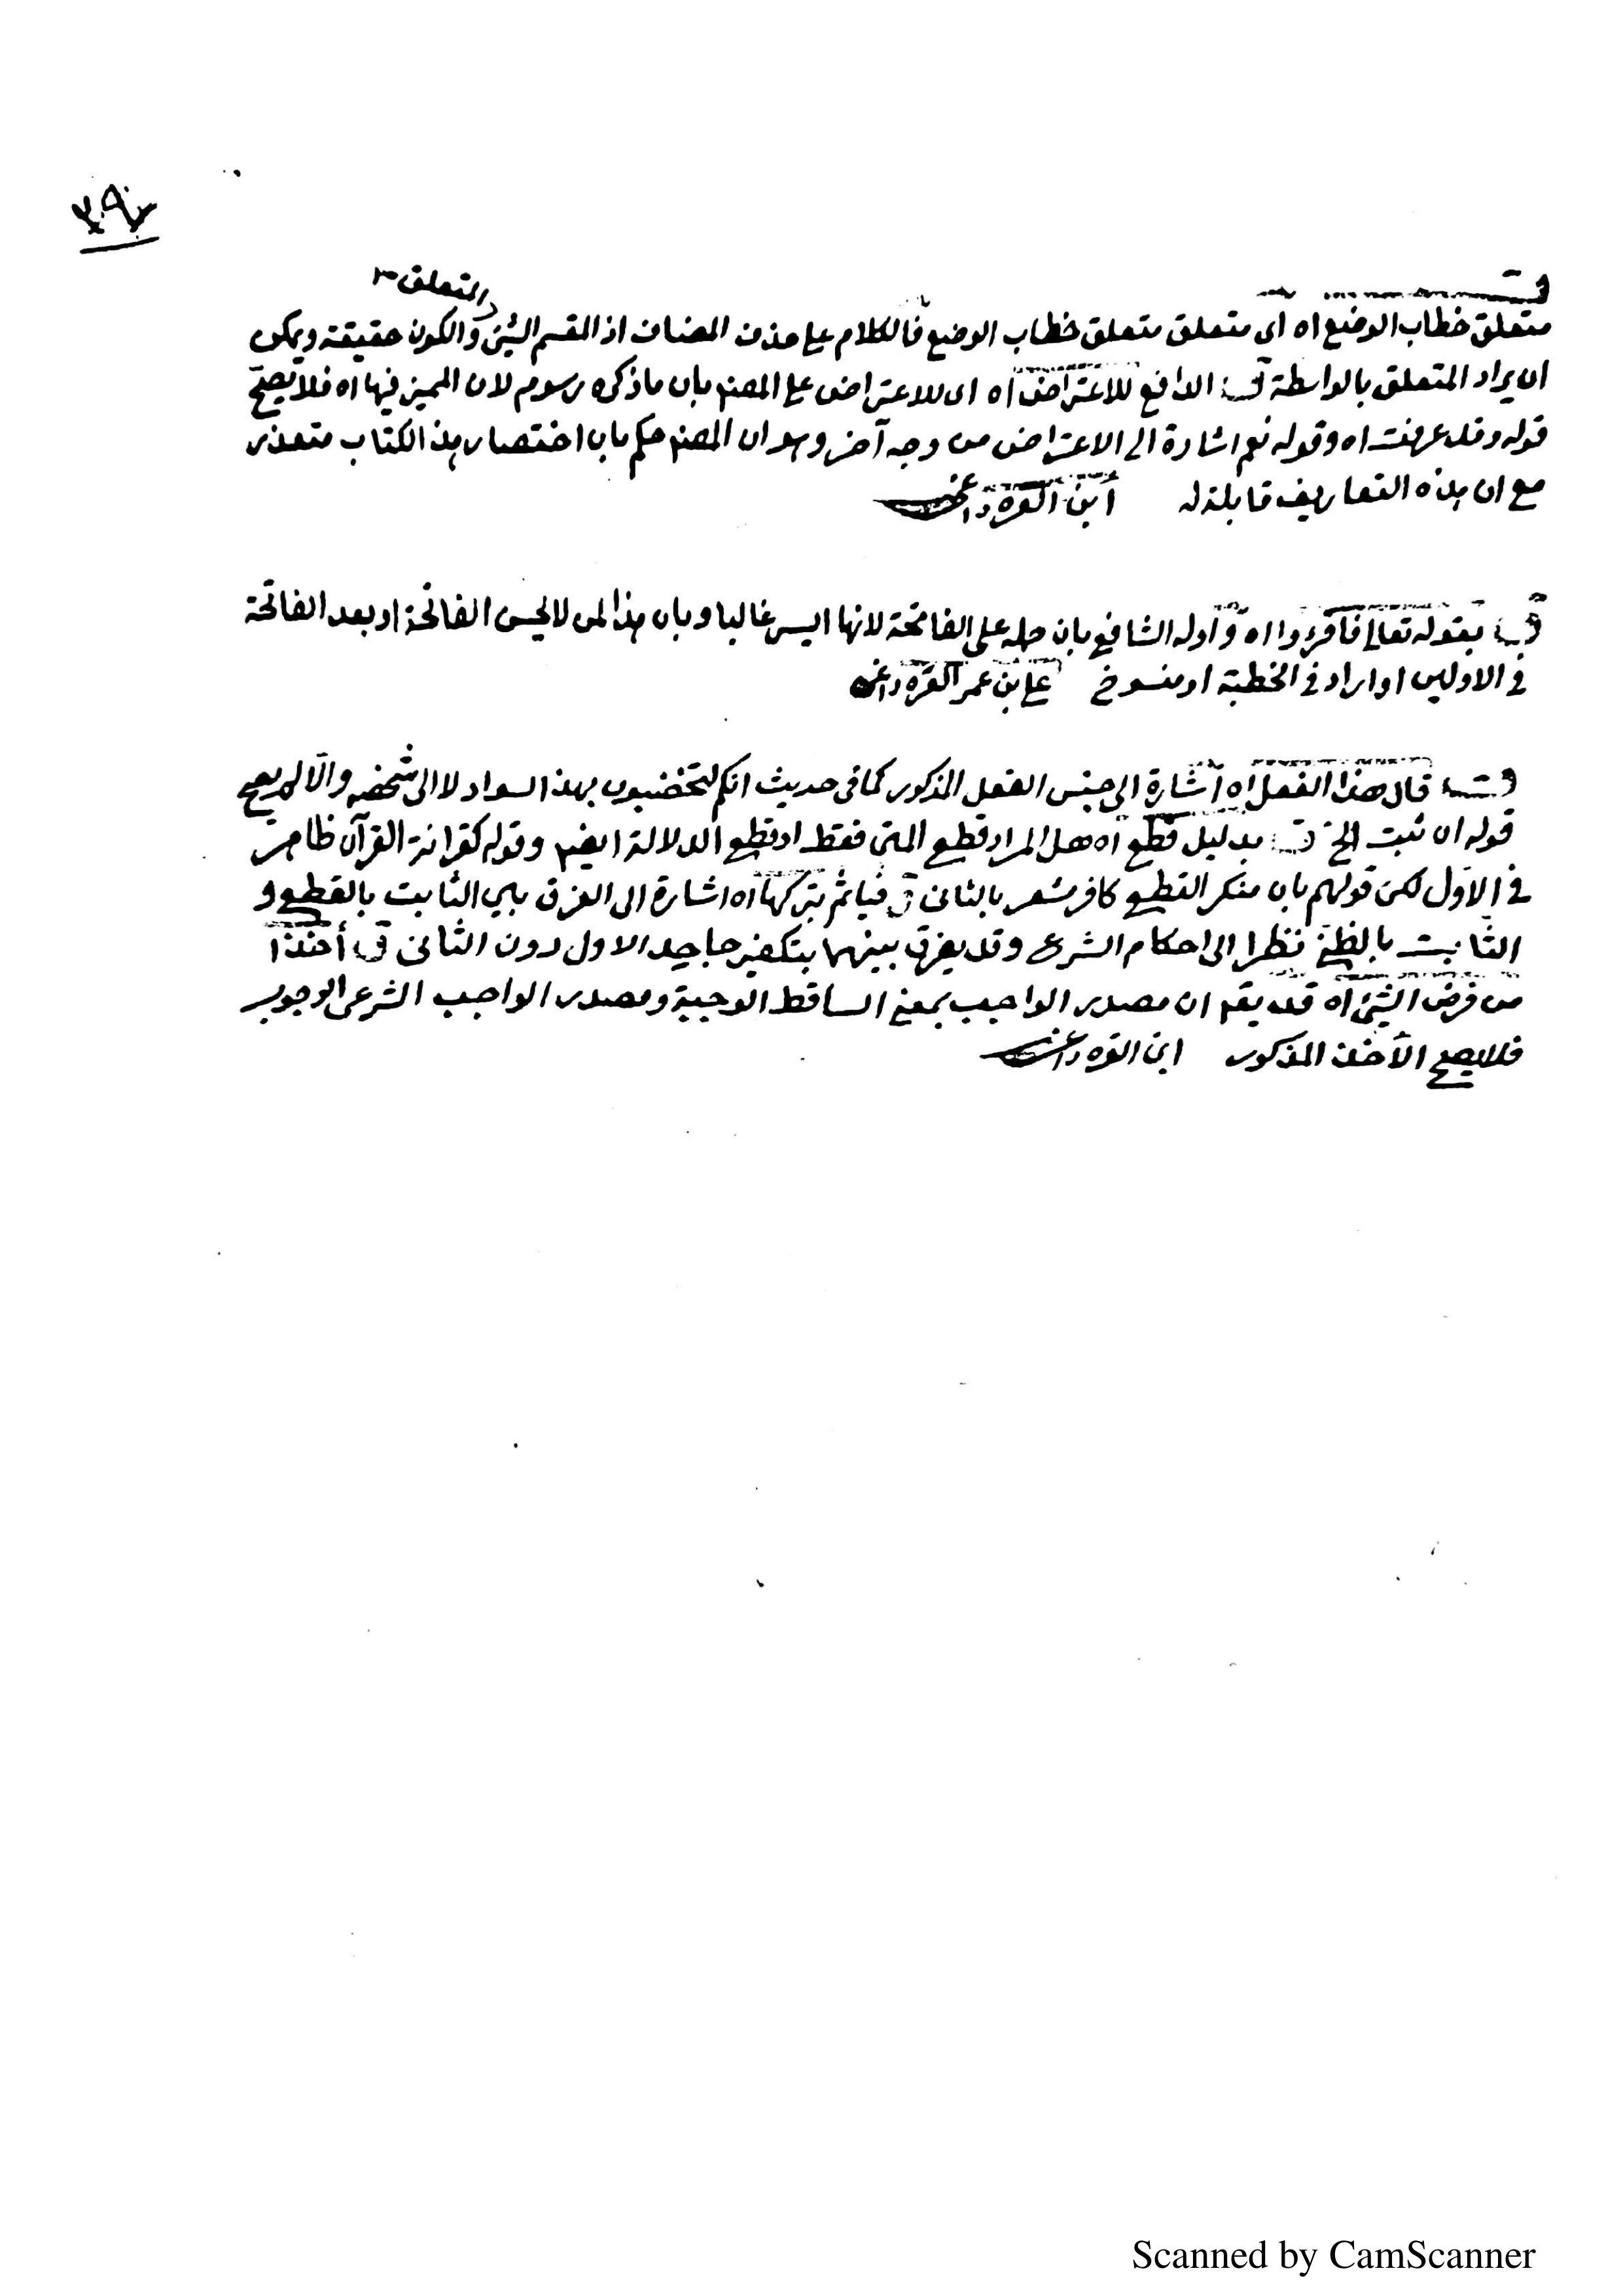 ٣٩٢
والمتعلق ٣
قـ
متعلق خطاب الوضع اه اى متعلق متعلق خطاب الوضع فالكلام على حذف المضاف اذ القسم الشيئ والكون حقيقة ويمكن
ان يراد المتعلق بالواسطة قـ الدافع للاعتراض اه اى للاعتراض على المصنـ بان ما ذكره رسوم لان المميز فيها اه فلا يصح
قوله وقد عرفت اه وقوله نعم اشارة الى الاعتراض من وجه آخر وهو ان المصنـ حكم بان اختصار هذا الكتاب متعذر
مع ان هذه التعاريف قابلة له ابن القره داغى
قـ بقوله تعالى فاقرءوا اه وأوله الشافع بان حمله على الفاتحة لانها ايسر غالبا وبان هذا لمن لا يحسن الفاتحة او بعد الفاتحة
فى الاوليين او اراد فى الخطبة او منسوخ على بن عمر القره داغى
قـ قال هذا الفعل اه اشارة الى جنس الفعل المذكور كما فى حديث انكم لتخضبون بهذا السواد لا الى شخصه والا لم يصح
قوله ان ثبت الخ قـ بدليل قطع اه هل المراد قطع المتن فقط او قطع الدلالة ايضـ وقوله كقرائة القرآن ظاهر
فى الاول لكن قولهم بان منكر القطع كافر مشعر بالثانى قـ فيأثم بتركها اه اشارة الى الفرق بين الثابت بالقطع و
الثابت بالظن نظرا الى احكام الشرع وقد يفرق بينهما بتكفير جاحد الاول دون الثانى قـ أخذا
من فرض الشيئ اه قد يقـ ان مصدر الواجب بمعنى الساقط الوجبة ومصدر الواجب الشرعى الوجوب
فلا يصح الأخذ المذكور ابن القره داغى
Scanned by CamScanner